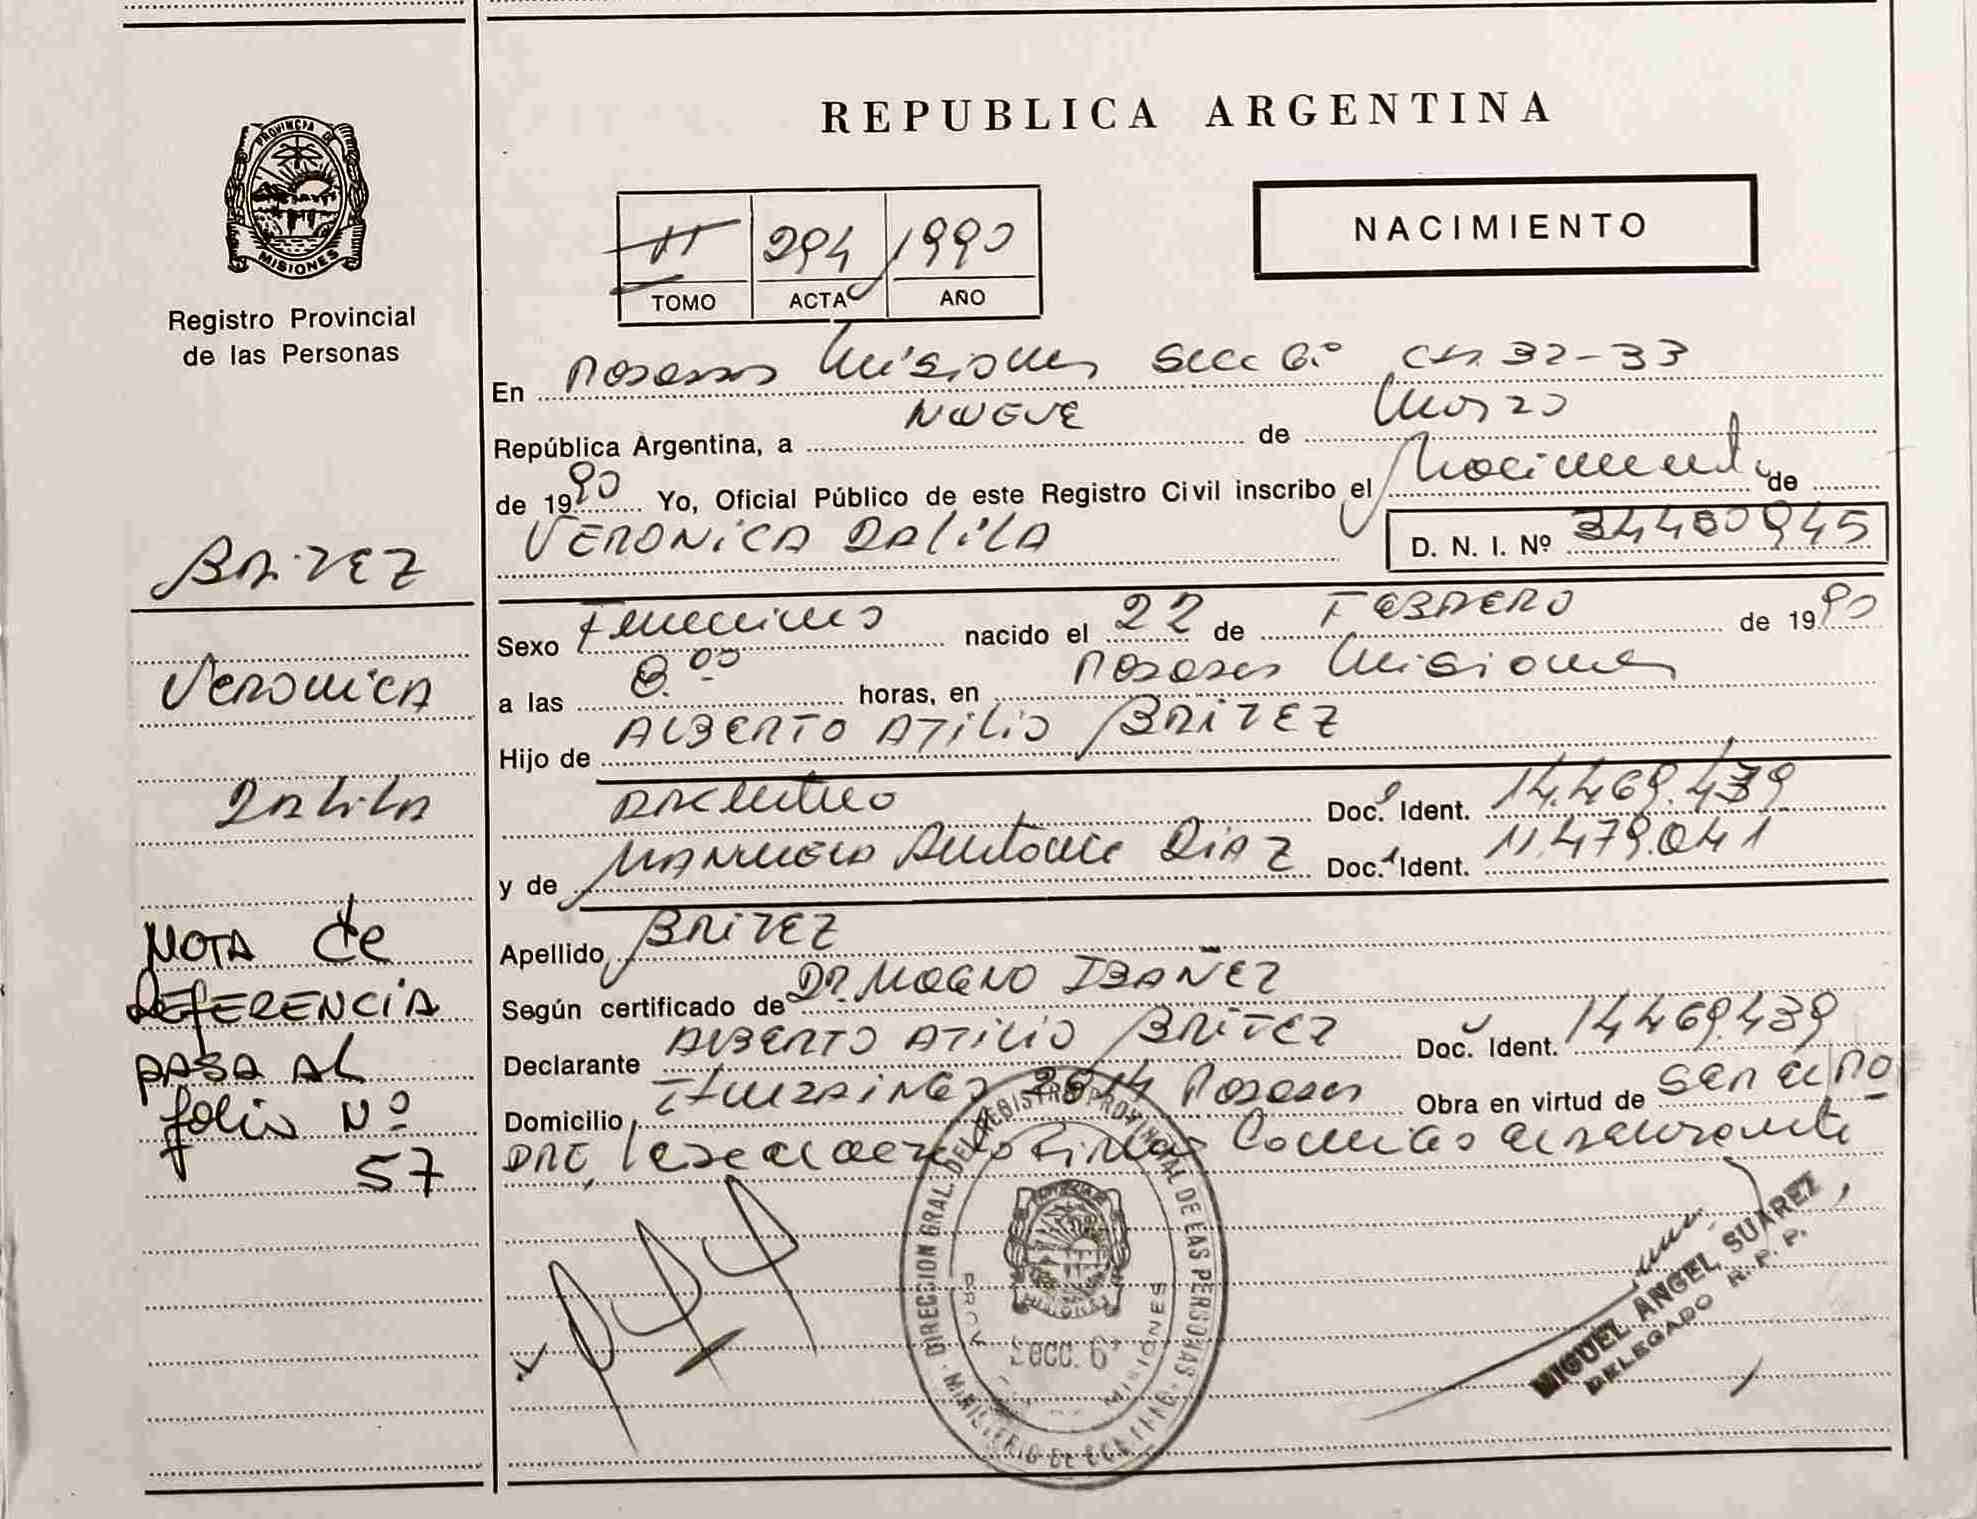 PROVINCIA DE
MISIONES
Registro Provincial
de las Personas
BRITEZ
Veronica
Dalila
NOTA de
REFERENCIA
PASA AL
folio Nº
57
REPUBLICA ARGENTINA
NACIMIENTO
II 294 1990
TOMO ACTA AÑO
En Posadas Misiones Secc 6.º Ch 32-33
República Argentina, a NUEVE de Marzo
de 1990 Yo, Oficial Público de este Registro Civil inscribo el Nacimiento de
VERONICA DALILA D. N. I. Nº 34480945
Sexo Femenino nacido el 22 de FEBRERO de 1990
a las 8.00 horas, en Posadas Misiones
Hijo de ALBERTO ATILIO BRITEZ
Argentino Doc. Ident. 14.469.439
y de MANUELA Antonia DIAZ Doc. Ident. 11.479.041
Apellido BRITEZ
Según certificado de Dr. MAGNO IBAÑEZ
Declarante ALBERTO ATILIO BRITEZ Doc. Ident. 14469.439
Domicilio 2814 Posadas Obra en virtud de ser el PA
DRE, Leida el acta firma Conmigo el declarante
DIRECCION GRAL. DEL REGISTRO PROVINCIAL DE LAS PERSONAS
PROV. MISIONES
Secc. 6ª
MIGUEL ANGEL SUAREZ
DELEGADO R. P. P.